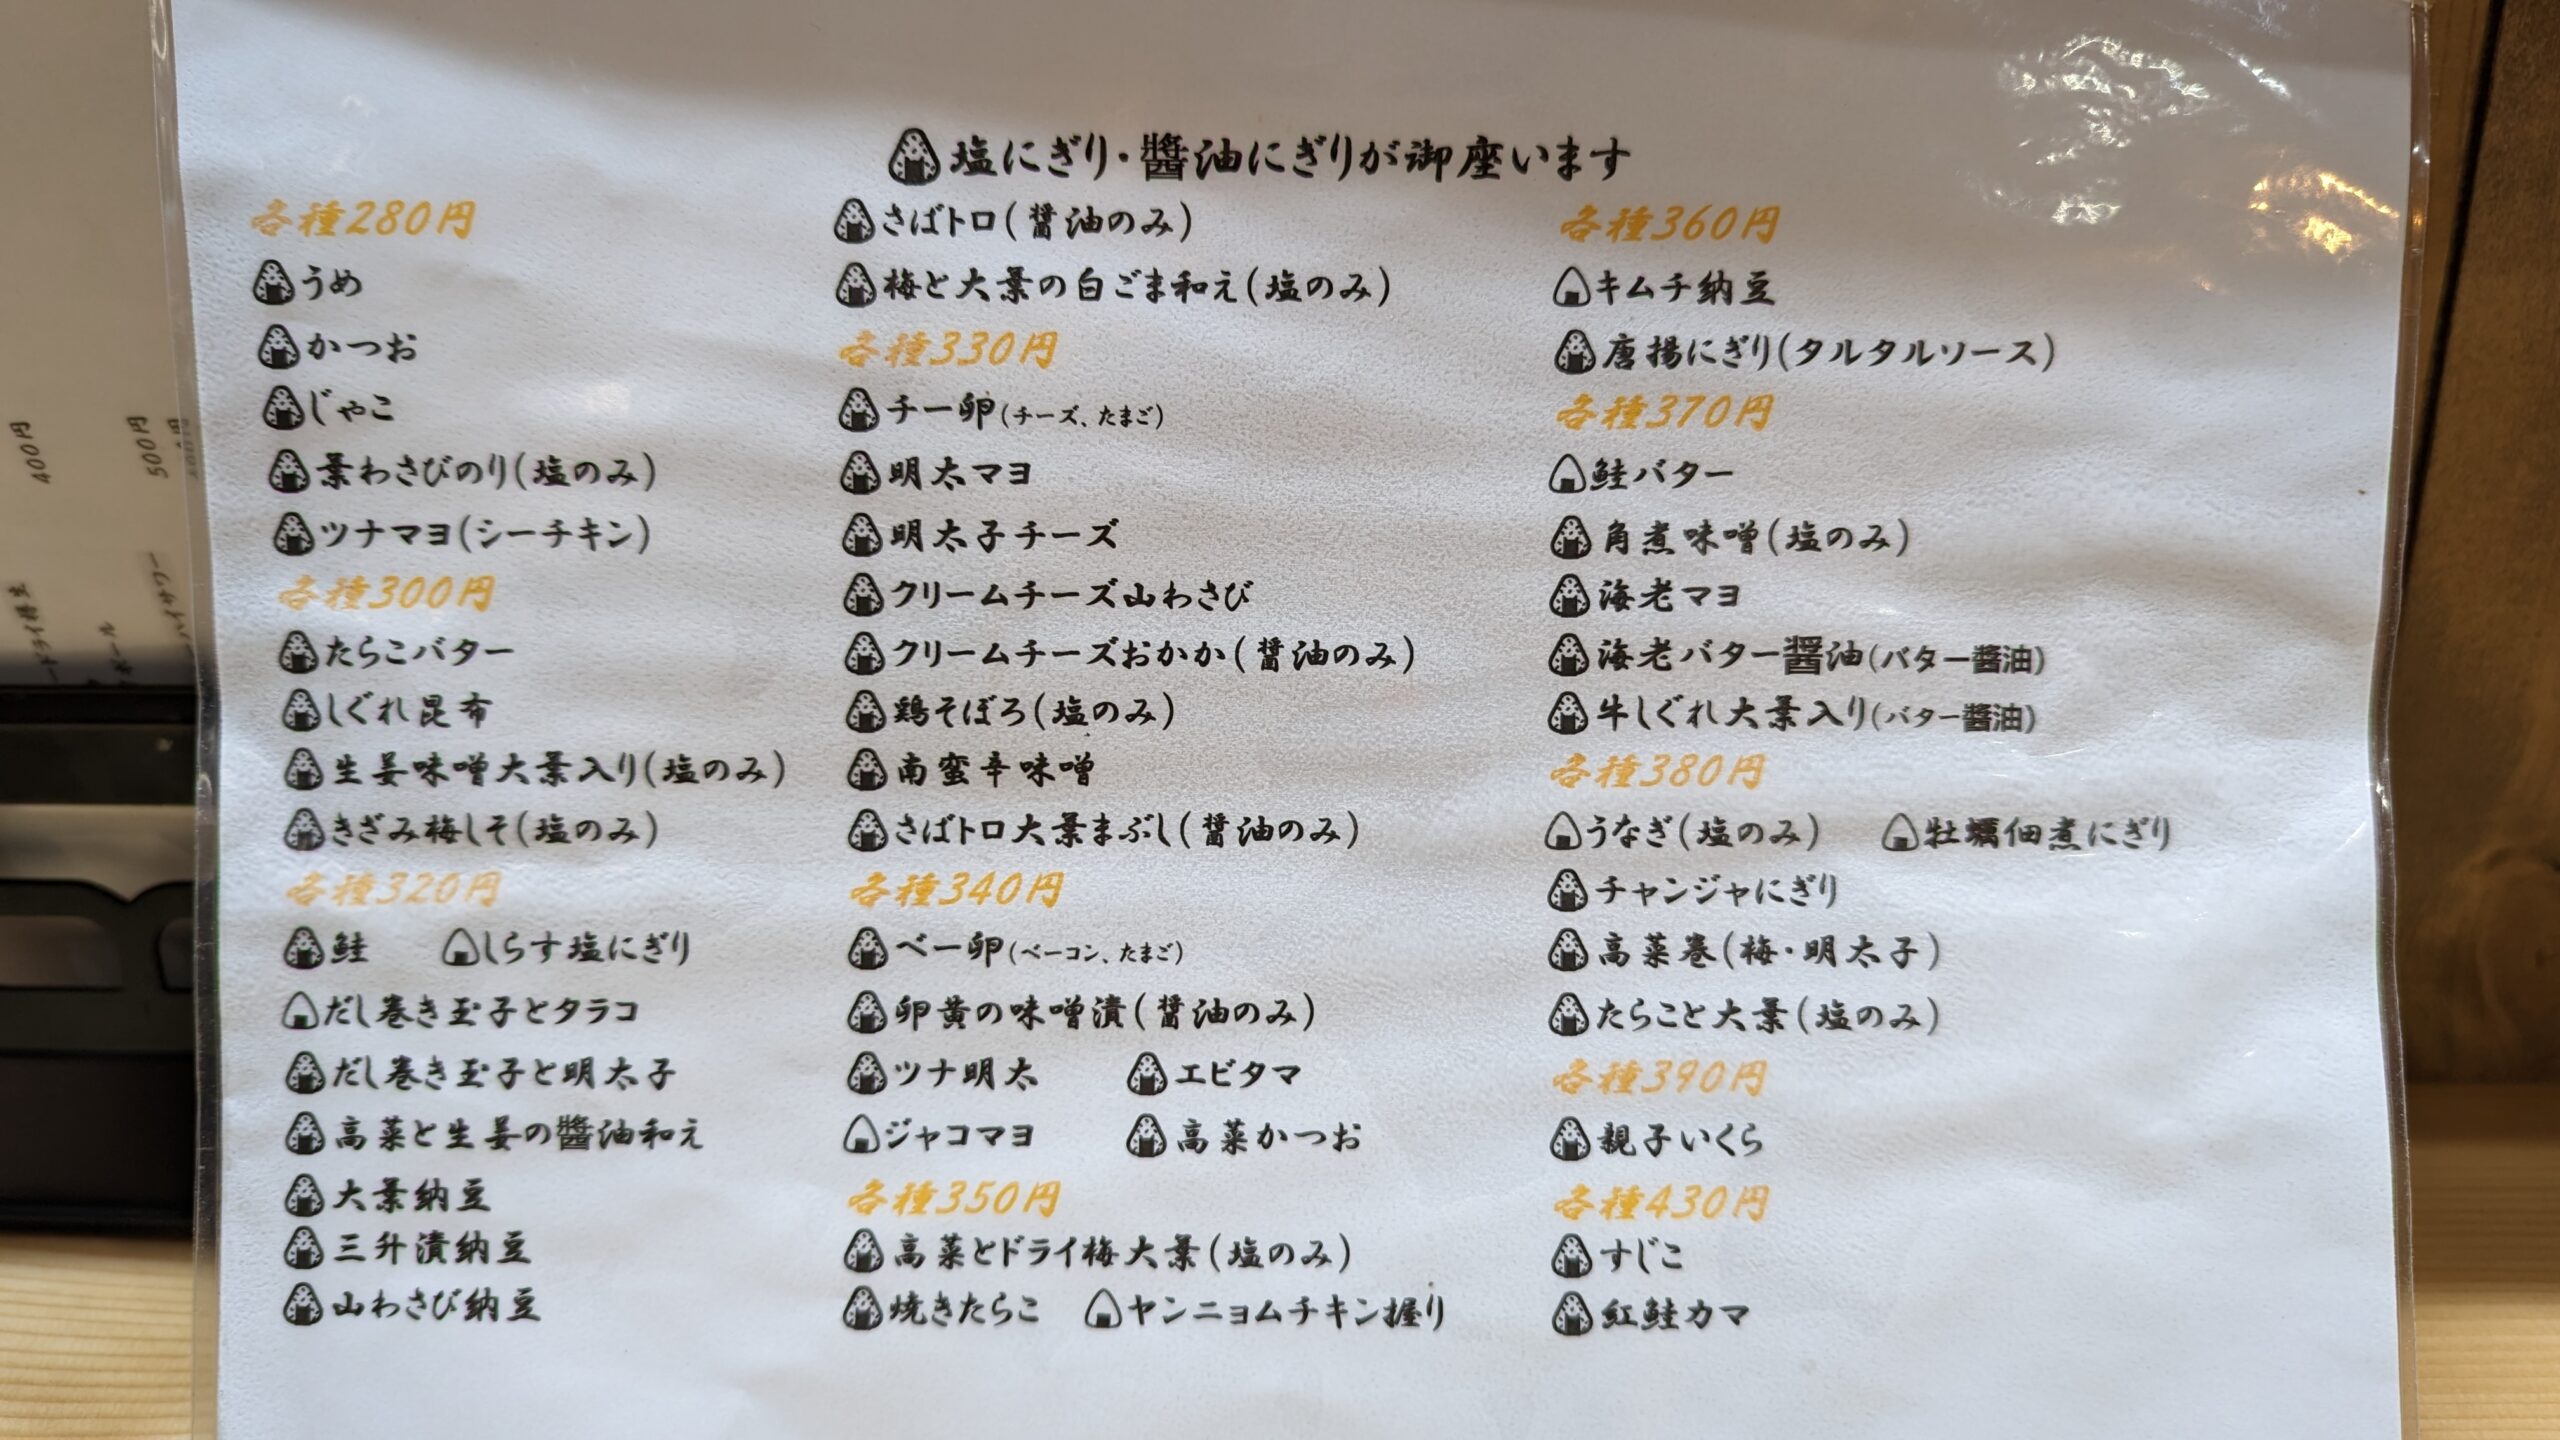 塩にぎり・醬油にぎりが御座います
各種280円
うめ
かつお
じゃこ
葉わさびのり(塩のみ)
ツナマヨ(シーチキン)
各種300円
たらこバター
しぐれ昆布
生姜味噌大葉入り(塩のみ)
きざみ梅しそ(塩のみ)
各種320円
鮭 しらす塩にぎり
だし巻き玉子とタラコ
だし巻き玉子と明太子
高菜と生姜の醬油和え
大葉納豆
三升漬納豆
山わさび納豆
さばトロ(醤油のみ)
梅と大葉の白ごま和え(塩のみ)
各種330円
チー卵(チーズ、たまご)
明太マヨ
明太子チーズ
クリームチーズ山わさび
クリームチーズおかか(醤油のみ)
鶏そぼろ(塩のみ)
南蛮辛味噌
さばトロ大葉まぶし(醤油のみ)
各種340円
ベー卵(ベーコン、たまご)
卵黄の味噌漬(醤油のみ)
ツナ明太 エビタマ
ジャコマヨ 高菜かつお
各種350円
高菜とドライ梅大葉(塩のみ)
焼きたらこ ヤンニョムチキン握り
各種360円
キムチ納豆
唐揚にぎり(タルタルソース)
各種370円
鮭バター
角煮味噌(塩のみ)
海老マヨ
海老バター醤油(バター醬油)
牛しぐれ大葉入り(バター醬油)
各種380円
うなぎ(塩のみ) 牡蠣佃煮にぎり
チャンジャにぎり
高菜巻(梅・明太子)
たらこと大葉(塩のみ)
各種390円
親子いくら
各種430円
すじこ
紅鮭カマ
400円
500円